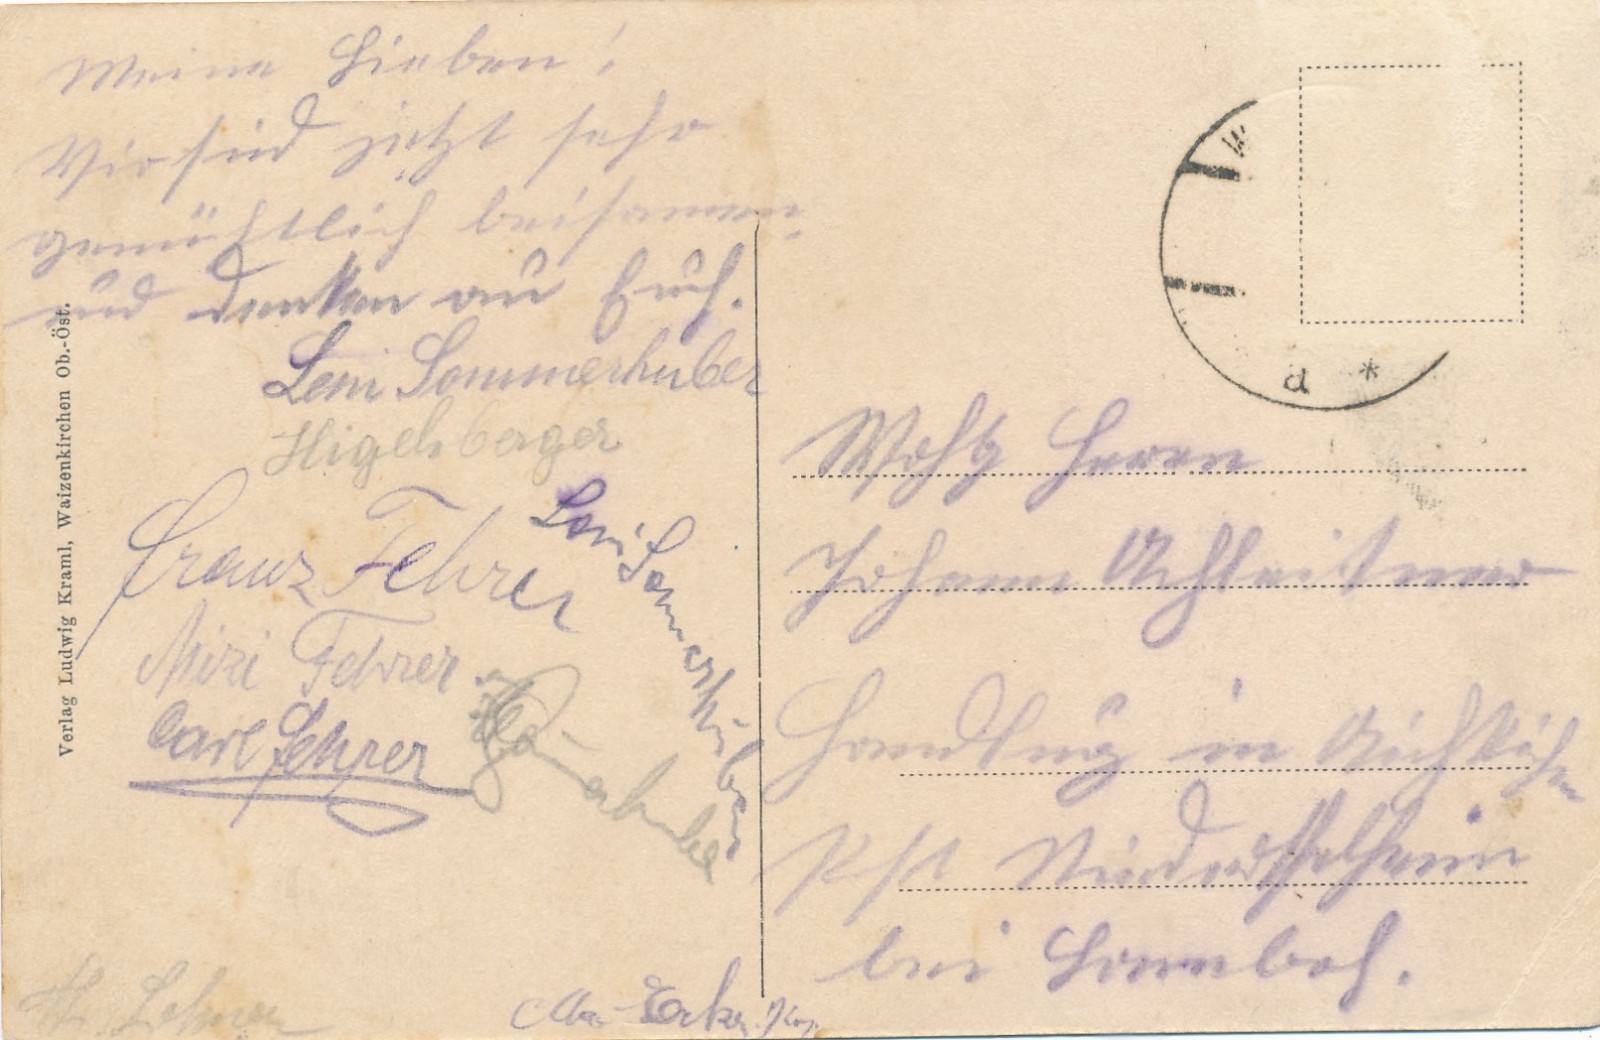 Meine Lieben!
Wir sind jetzt sehr
gemühtlich beisamen
und denken an Euch.
Leni Sommerhuber
Higelsberger
Franz Fehrer
Loni Sommerhuber
Mizi Fehrer
Carl Fehrer
Lehner
Verlag Ludwig Kraml, Waizenkirchen Ob.-Öst.
W
a *
Wohlg Herrn
Johann Achleitner
Handlung in Aichkirchen
Pst
bei Lambach.